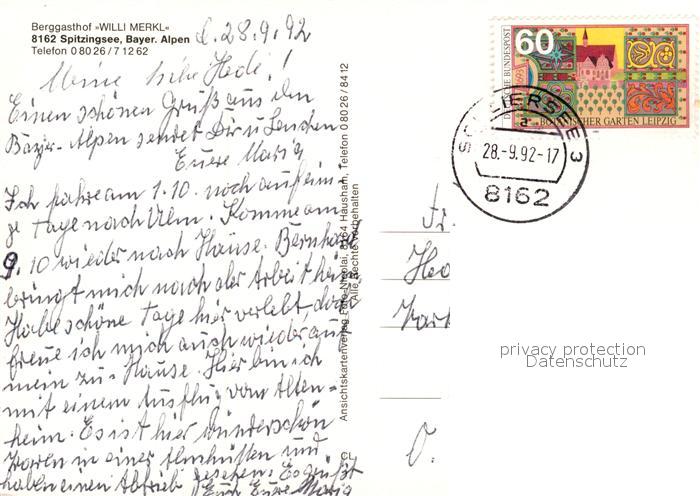 Berggasthof »WILLI MERKL«
8162 Spitzingsee, Bayer. Alpen
Telefon 0 80 26 / 7 12 62
28.9.92
Meine liebe Hedi!
Einen schönen Gruß aus den
Bayr. Alpen sendet Dir u Lenchen
Euere Maria
Ich fahre am 1.10. noch auf ein
Tage nach Ulm. Komme am
9.10 wieder nach Hause. Bernhard
bringt mich nach der Arbeit heim
Habe schöne Tage hier verlebt, doch
freue ich mich auch wieder auf
mein zu Hause. Hier bin ich
mit einem Ausflug vom Alten=
heim. Es ist hier wunderschön
waren in einer Almhütten und
haben einen Abtrieb gesehen. Es grüßt
Euch Euere Maria
Ansichtskartenverlag Foto-Nikolai, 8164 Hausham, Telefon 0 80 26 / 84 12
Alle Rechte vorbehalten
60
DEUTSCHE BUNDESPOST
BOTANISCHER GARTEN LEIPZIG
SCHLIERSEE 3
a
28.-9.92-17
8162
Fr.
privacy protection
Datenschutz